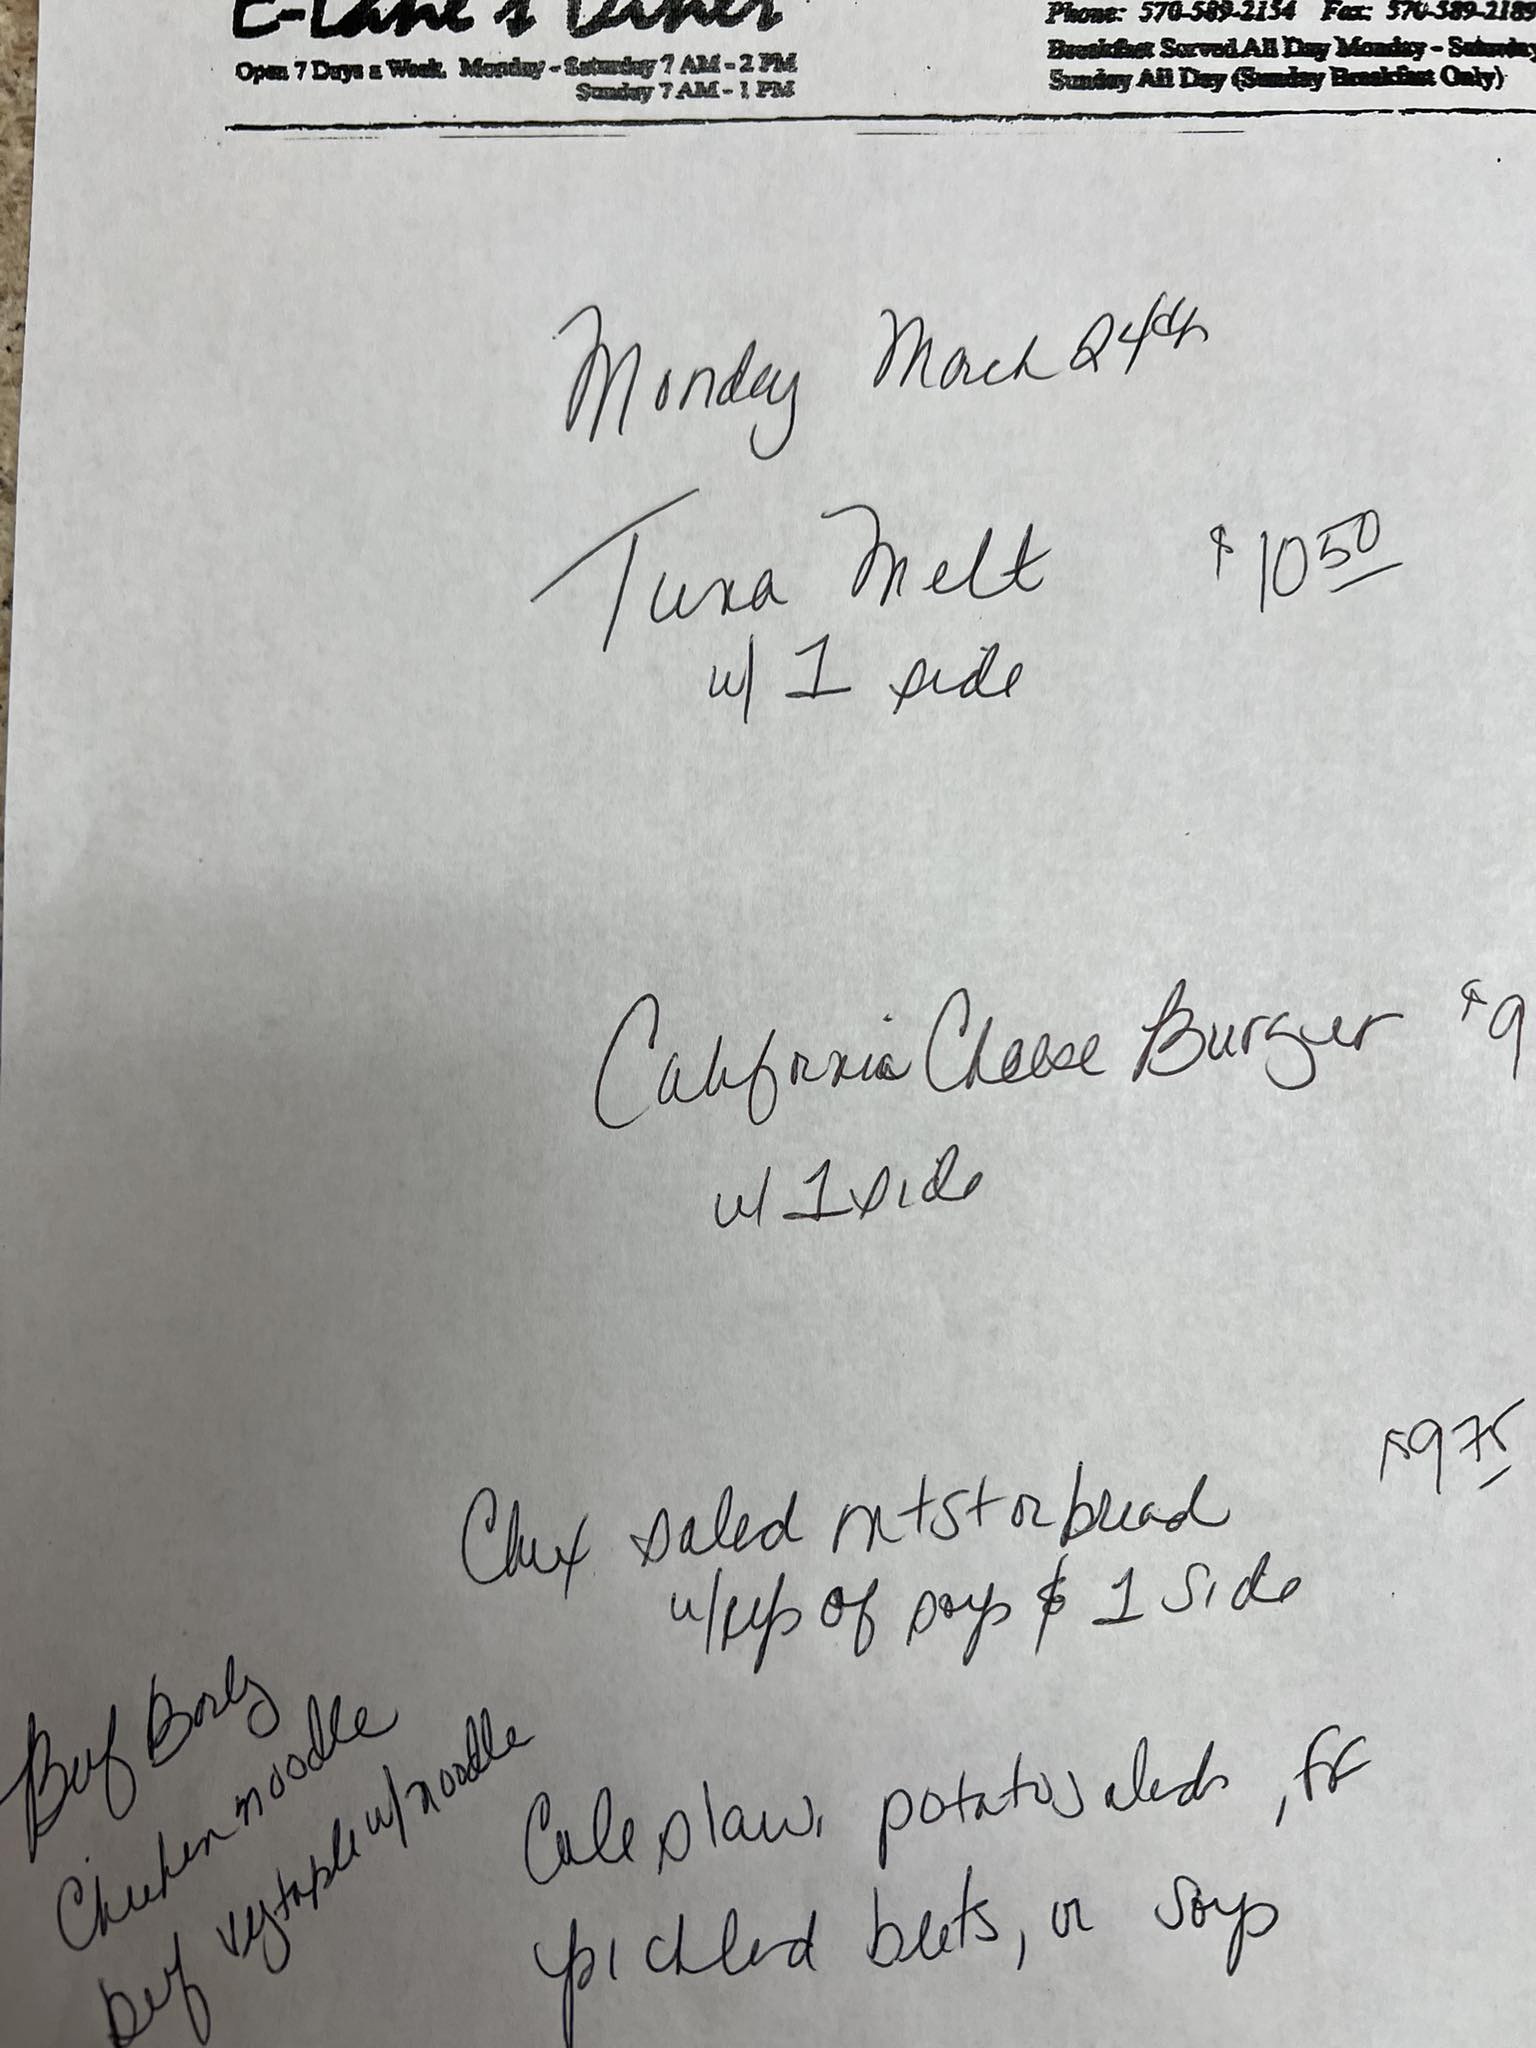 E-Lane's Diner
Open 7 Days a Week. Monday - Saturday 7 AM - 2 PM
Sunday 7 AM - 1 PM
Phone: 570-589-2154 Fax: 570-589-2189
Breakfast Served All Day Monday - Saturday
Sunday All Day (Sunday Breakfast Only)
Monday March 24th
Tuna Melt $10 50
w/ 1 side
California Cheese Burger $9
w/ 1 side
$9 75
salad on tst or bread
w/cup of soup & 1 side
Beef Barly
Chicken noodle
beef vegtable w/ noodle
Coleslaw, potato salad, FF
pickled beets, or soup